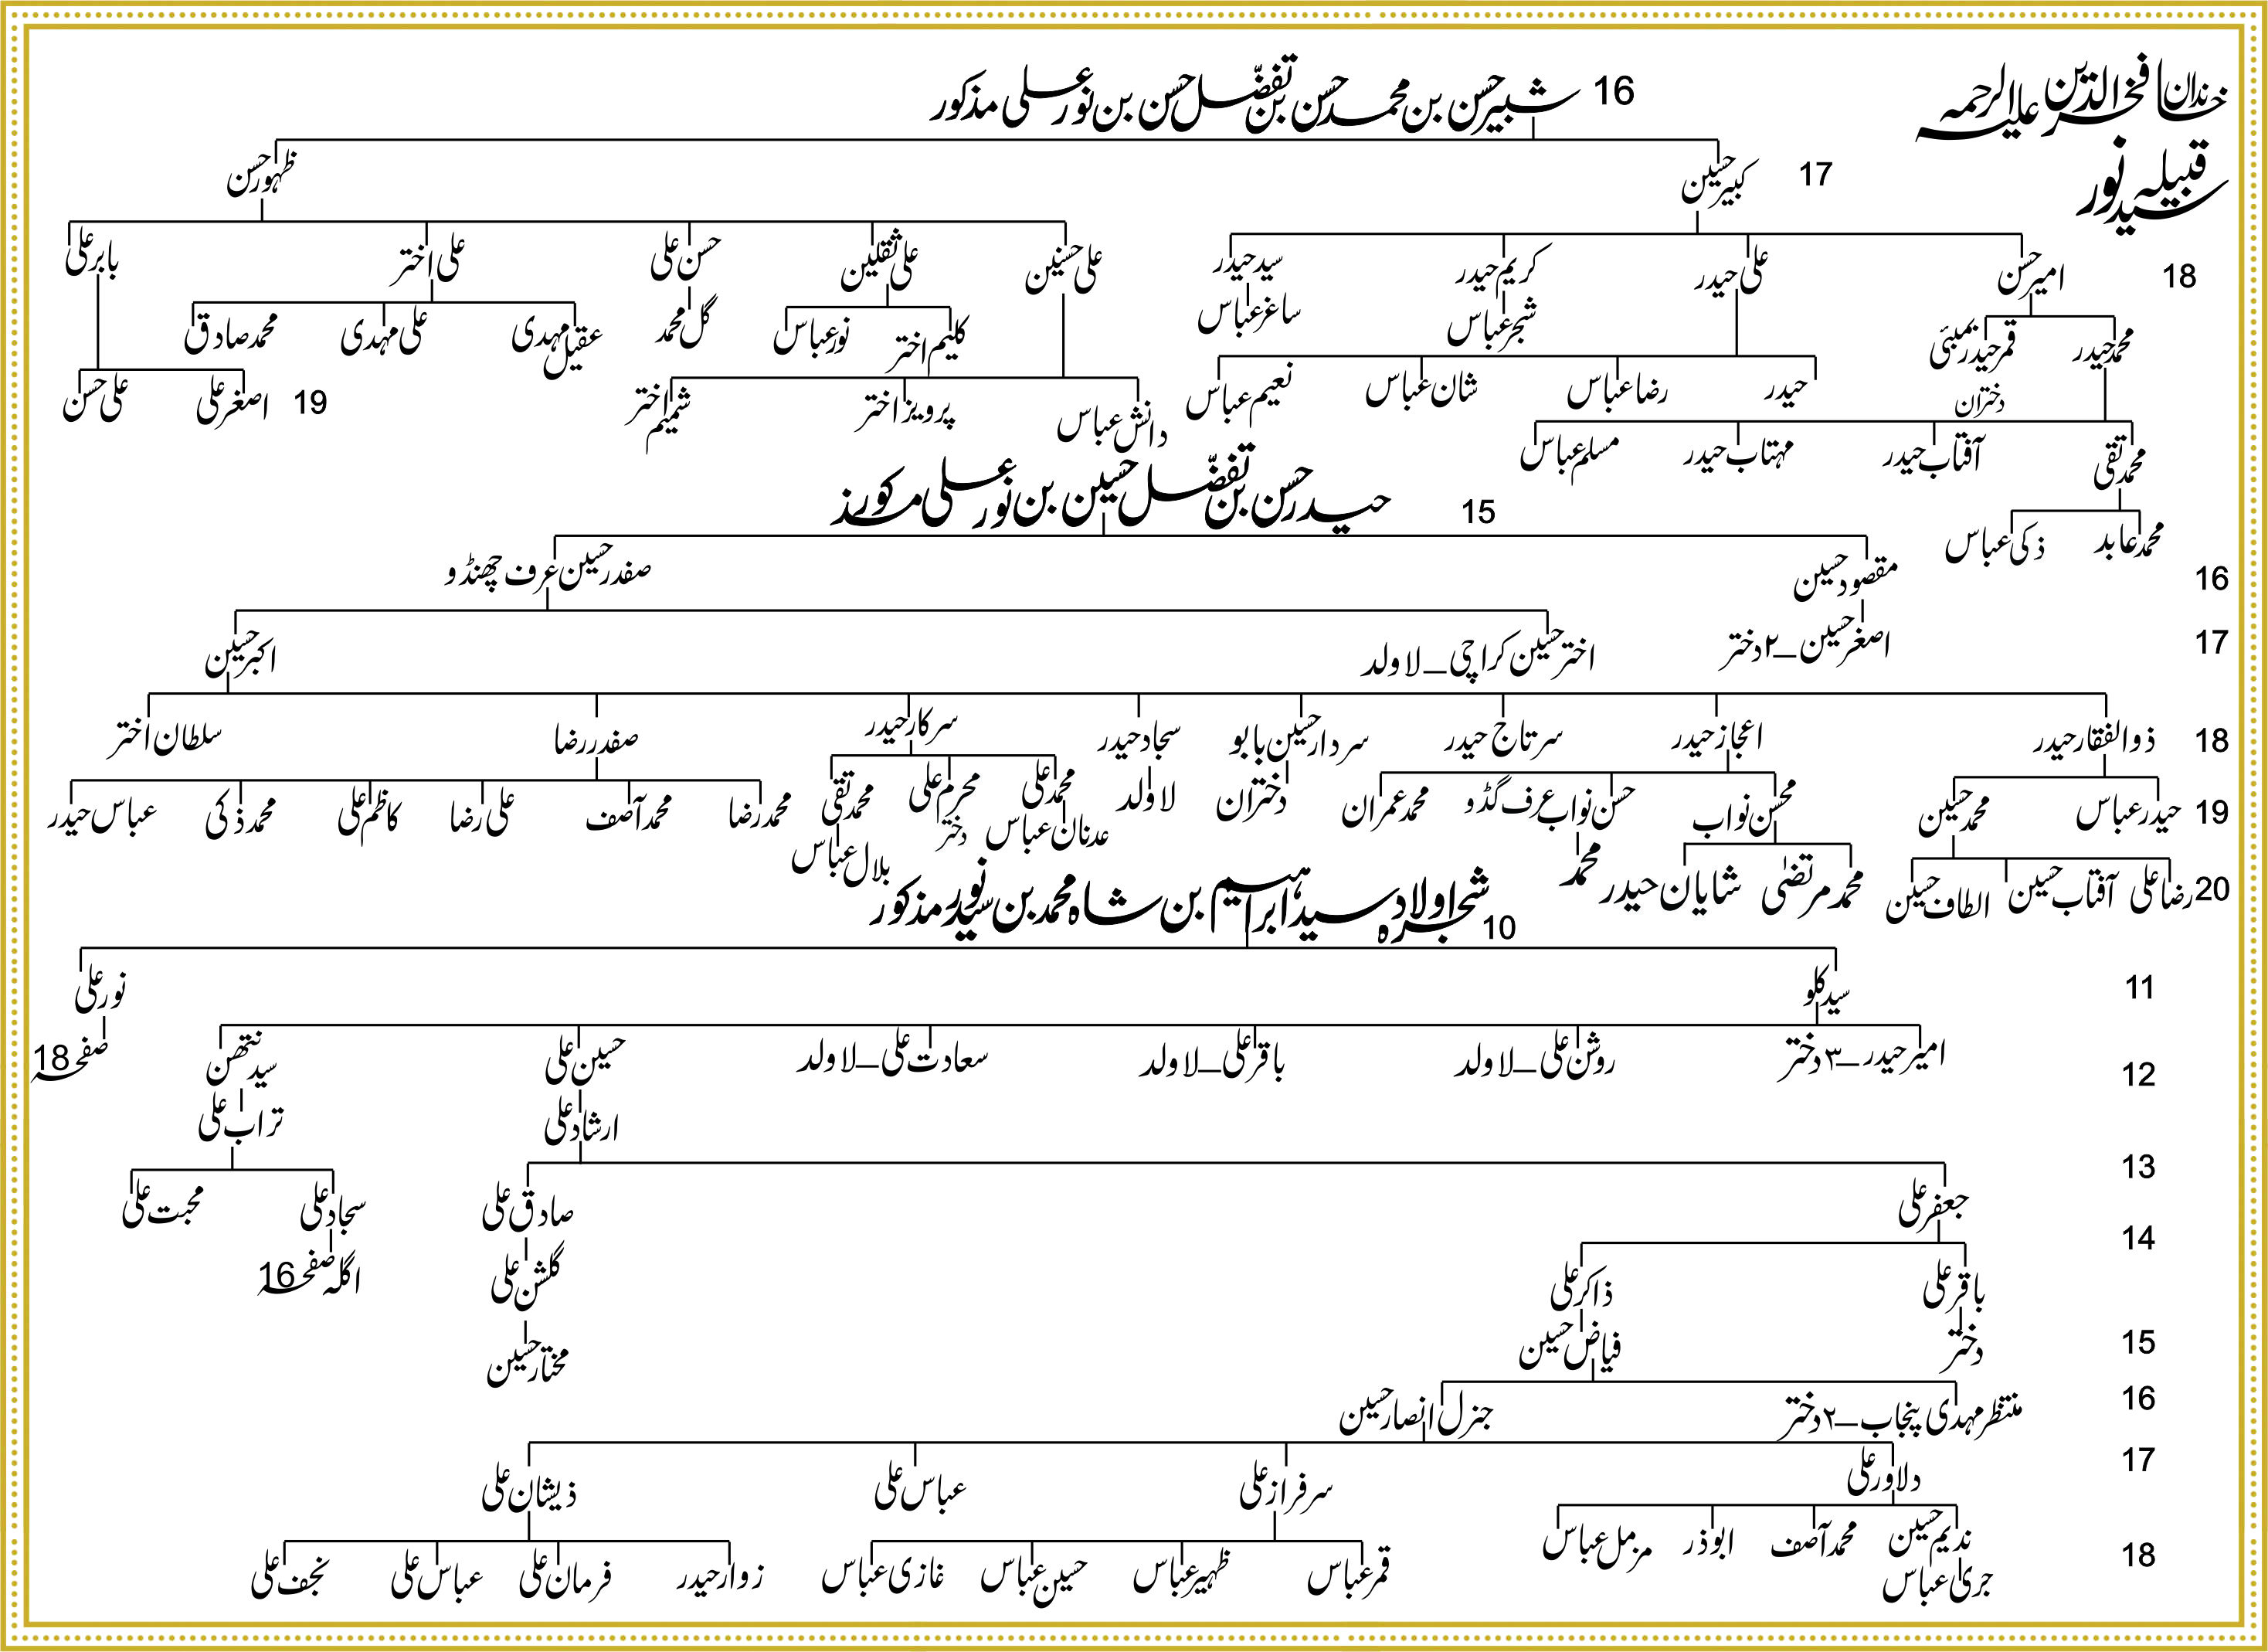 خاندان فخرالدین علیہ الرحمہ
قبیلہ سید نور
16 شبیر حسن بن محمد حسن بن تفضّل حسن بن نور علی مذکور
17 کبیر حسین ظہور حسن
18 امیر حسن علی حیدر کریم حیدر سید حیدر علی حسنین علی ثقلین حسن علی علی اختر بابر علی
محمد حیدر قمر حیدر بمبئی شجر عباس ساغر عباس کلیم اختر نور عباس گل محمد عقیل مہدی علی مہدی محمد صادق
دختران حیدر رضا عباس شان عباس نعیم عباس دانش عباس پرویز اختر شمیم اختر 19 اصغر علی علی حسن
محمد تقی آفتاب حیدر مہتاب حیدر مسلم عباس
محمد عابد ذکی عباس
15 حیدر حسن بن تفضّل حسین بن نور علی مذکور
16 مقصود حسین صفدر حسین عرف چھنڈو
17 اصغر حسین _ ۲ دختر اختر حسین کراچی _ لا ولد اکبر حسین
18 ذوالفقار حیدر اعجاز حیدر سرتاج حیدر سردار حسین بابو سجاد حیدر سرکار حیدر صفدر رضا سلطان اختر
19 حیدر عباس محمد حسین محسن نواب حسن نواب عرف گڈو محمد عمران دختران لا ولد محمد علی محرم علی محمد تقی محمد رضا محمد آصف علی رضا کاظم علی محمد ذکی عباس حیدر
عدنان عباس دختر بلال عباس
20 رضا علی آفتاب حسین الطاف حسین محمد مرتضیٰ شایان حیدر محمد
10 شجرہ اولاد سید ابراہیم بن شاہ محمد بن سید نور مذکور
11 سید کلو نور علی
12 امیر حیدر _ ۳ دختر روشن علی _ لا ولد باقر علی _ لا ولد سعادت علی _ لا ولد حسین علی سید نتھن صفحہ 18
ارشاد علی تراب علی
13
جعفر علی صادق علی سجاد علی محبت علی
14
باقر علی ذاکر علی گلشن علی اگلہ صفحہ 16
15 دختر فیاض حسین مختار حسین
16 منتظر مہدی پنجاب _ ۲ دختر جنرل انصار حسین
17 دلاور علی سرفراز علی عباس علی ذیشان علی
18 ندیم حسین محمد آصف ابوذر مزمل عباس قمر عباس ظہیر عباس حسین عباس غازی عباس زوار حیدر فرمان علی عباس علی نجف علی
جری عباس